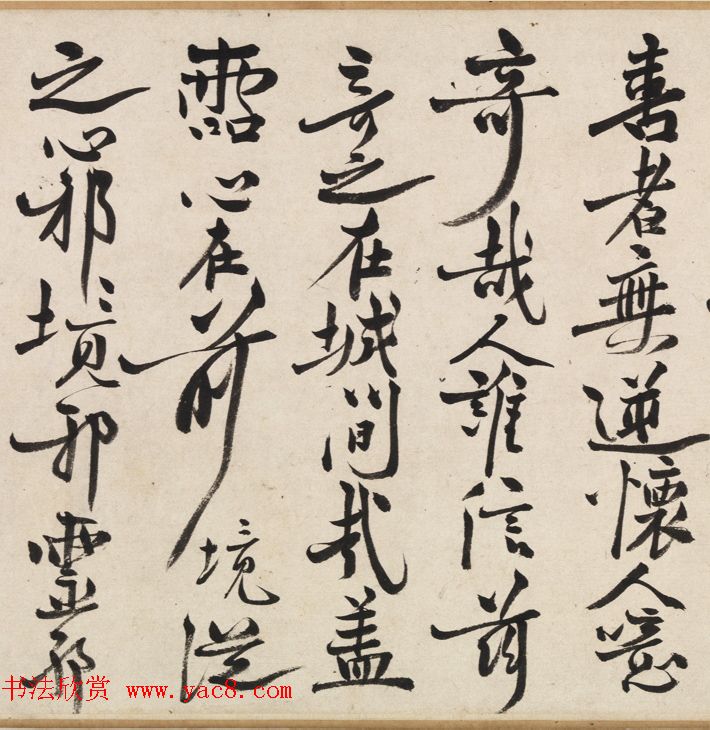 善者無逆懷人
奇哉人誰信
奇之在城間哉盖
心在前境從
之心邪境邪靈邪
书法欣赏 www.yac8.com